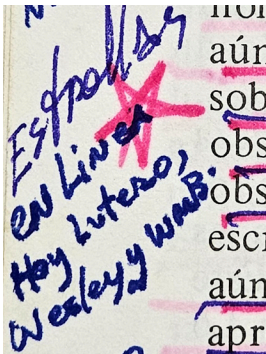 Estrellas
en Linea
Hoy Lutero,
Wesley y WMB.
aún
sob
obs
obs
escr
aún
apr